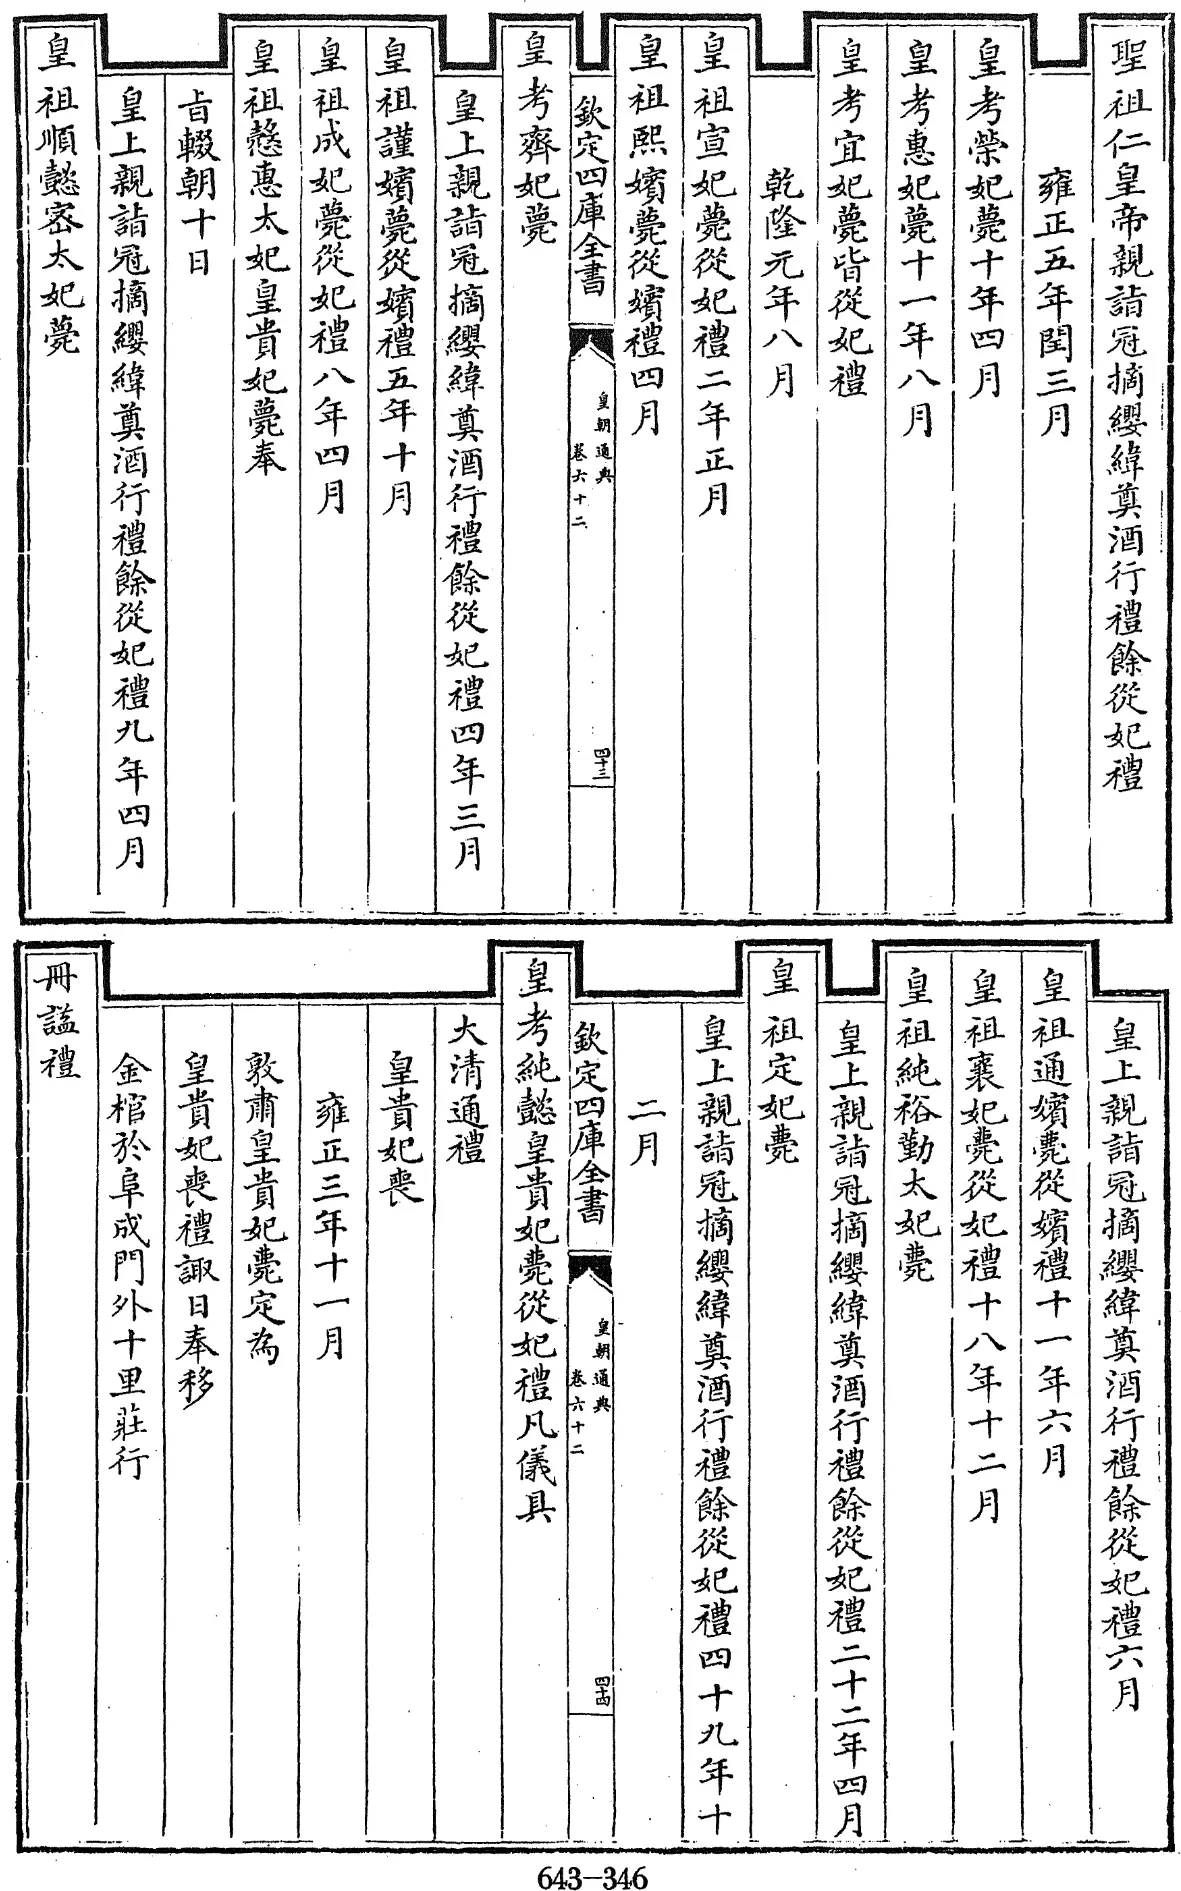 聖祖仁皇帝親詣冠摘纓緯奠酒行禮餘從妃禮
雍正五年閏三月
皇考榮妃薨十年四月
皇考惠妃薨十一年八月
皇考宜妃薨皆從妃禮
乾隆元年八月
皇祖宣妃薨從妃禮二年正月
皇祖熙嬪薨從嬪禮四月
欽定四庫全書
皇朝通典
卷六十二
四十三
皇考齊妃薨
皇上親詣冠摘纓緯奠酒行禮餘從妃禮四年三月
皇祖謹嬪薨從嬪禮五年十月
皇祖成妃薨從妃禮八年四月
皇祖慤惠太妃皇貴妃薨奉
旨輟朝十日
皇上親詣冠摘纓緯奠酒行禮餘從妃禮九年四月
皇祖順懿密太妃薨
皇上親詣冠摘纓緯奠酒行禮餘從妃禮六月
皇祖通嬪薨從嬪禮十一年六月
皇祖襄妃薨從妃禮十八年十二月
皇祖純裕勤太妃薨
皇上親詣冠摘纓緯奠酒行禮餘從妃禮二十二年四月
皇祖定妃薨
皇上親詣冠摘纓緯奠酒行禮餘從妃禮四十九年十
二月
欽定四庫全書
皇朝通典
卷六十二
四十四
皇考純懿皇貴妃薨從妃禮凡儀具
大清通禮
皇貴妃喪
雍正三年十一月
敦肅皇貴妃薨定為
皇貴妃喪禮諏日奉移
金棺於阜成門外十里莊行
冊諡禮
643-346